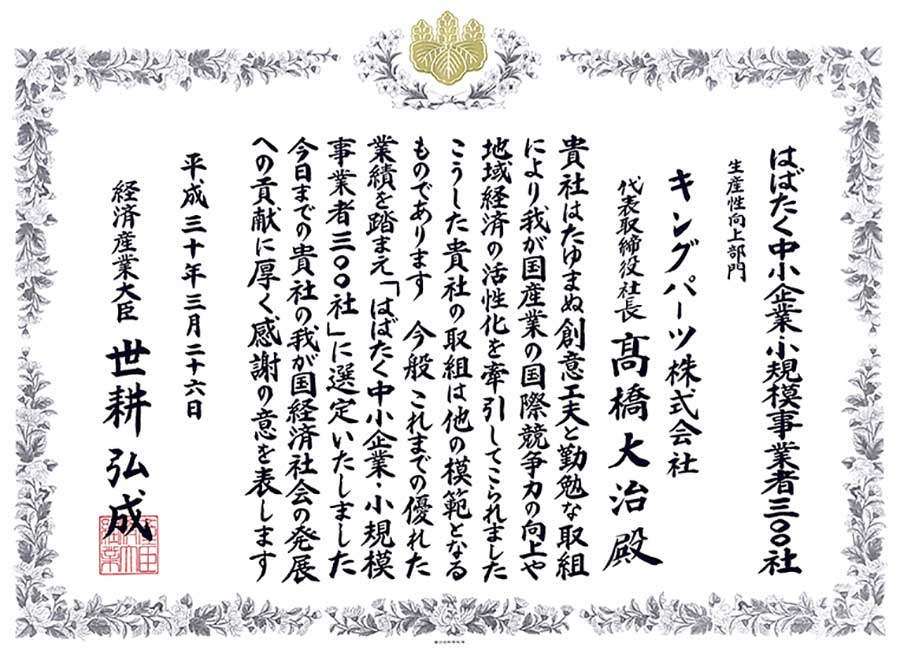 はばたく中小企業・小規模事業者三〇〇社
生産性向上部門
キングパーツ株式会社
代表取締役社長 髙橋大治 殿
貴社はたゆまぬ創意工夫と勤勉な取組
により我が国産業の国際競争力の向上や
地域経済の活性化を牽引してこられました
こうした貴社の取組は他の模範となる
ものであります 今般これまでの優れた
業績を踏まえ「はばたく中小企業・小規模
事業者三〇〇社」に選定いたしました
今日までの貴社の我が国経済社会の発展
への貢献に厚く感謝の意を表します
平成三十年三月二十六日
経済産業大臣 世耕弘成